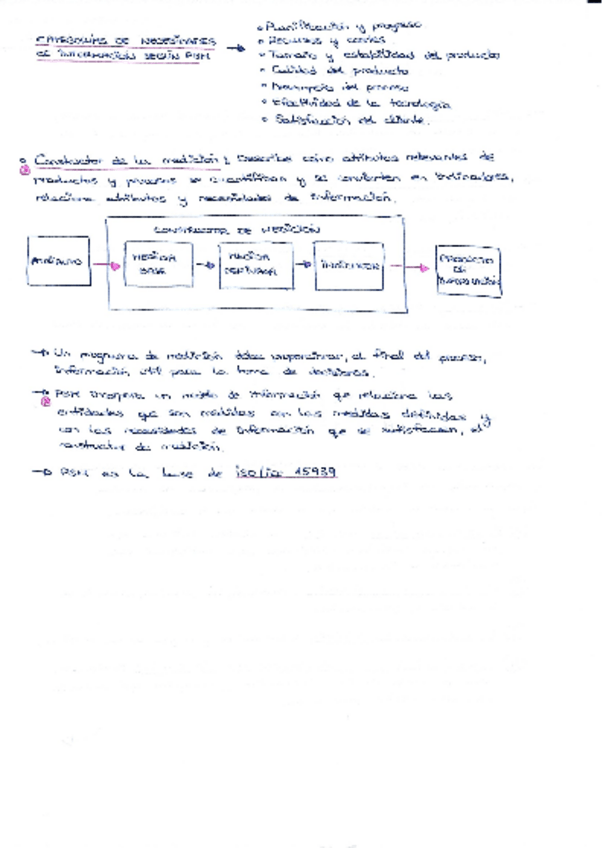 CATEGORÍAS DE NECESIDADES
DE INFORMACIÓN SEGÚN PSM
Planificación y progreso
Recursos y costes
Tamaño y estabilidad del producto
Calidad del producto
del proceso
Efectividad de la tecnología
Satisfacción del cliente.
Constructor de la medición: Describe cómo atributos relevantes de
productos y procesos se cuantifican y se convierten en indicadores,
relaciona atributos y necesidades de información.
CONSTRUCTOR DE MEDICIÓN
ATRIBUTO
MEDIDA
BASE
MEDIDA
DERIVADA
INDICADOR
PRODUCTO
DE
INFORMACIÓN
→ Un programa de medición debe proporcionar, al final del proceso,
información útil para la toma de decisiones.
→ PSM incorpora un modelo de información que relaciona las
entidades que son medidas con las medidas definidas y
con las necesidades de información que se satisfacen, el
constructor de medición.
→ PSM es la base de iso/iec 15939